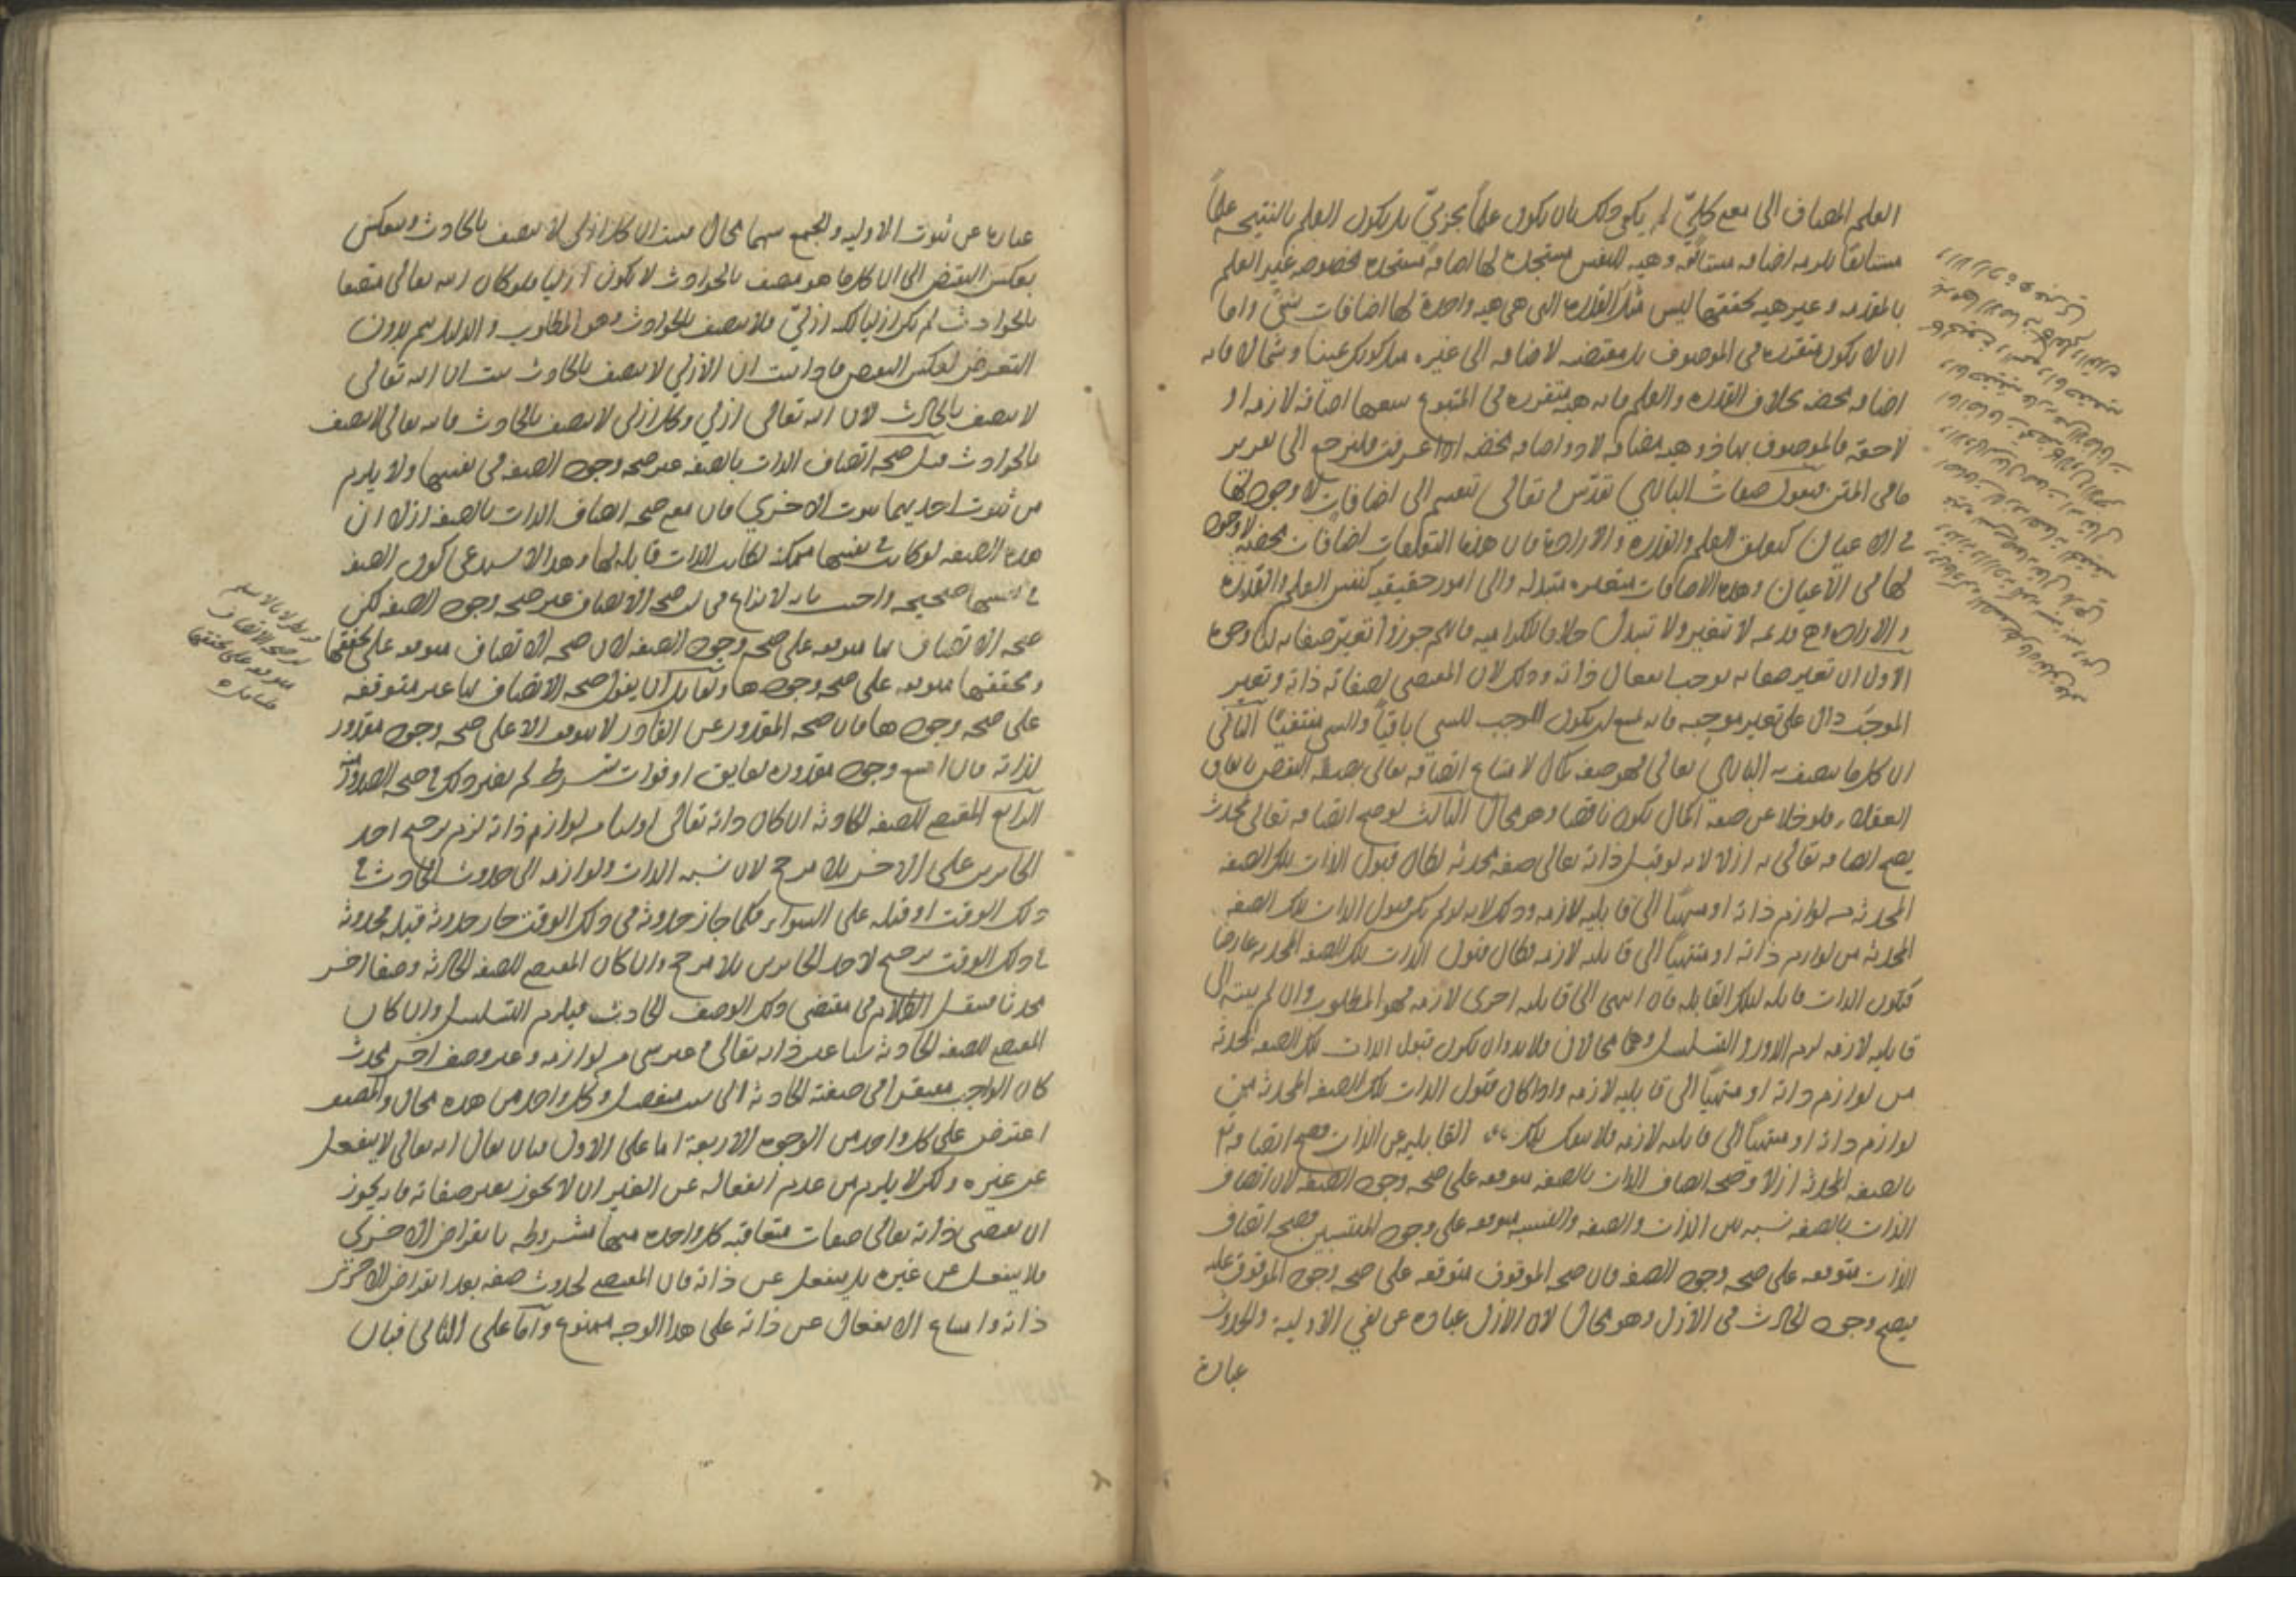 العلم المضاف الى معنى كلي لم يكف ذلك بان يكون علما بجزئي بل يكون العلم بالنتيجة علما
مستانفا يلزمه اضافة مستانفة وهيئة للنفس مستجدة لها اضافة مستجدة مخصوصة غير العلم
بالمقدمة وغير هيئة تحققها ليس مثل القدرة التي هي هيئة واحدة لها اضافات شتى واما
ان لا يكون متقررة في الموصوف بل مقتضية لاضافة الى غيره مثل كونك يمينا وشمالا فانه
اضافة محضة بخلاف القدرة والعلم فانه هيئة متقررة في المتبوع يتبعها اضافة لازمة او
لاحقة فالموصوف بهما ذو هيئة مضافة لا ذو اضافة محضة اذا عرفت فلنرجع الى تقرير
ما في المتن فنقول صفات الباري تقدس وتعالى تنقسم الى اضافات لا وجود لها
في الاعيان كتعلق العلم والقدرة والارادة فان هذه التعلقات اضافات محضة لا وجود
لها في الاعيان وهذه الاضافات متغيرة متبدلة والى امور حقيقية كنفس العلم والقدرة
والارادة وهي قديمة لا تتغير ولا تتبدل خلافا للكرامية فانهم جوزوا تغير صفاته لنا وجوه
الاول ان تغير صفاته يوجب انفعال ذاته وذلك لان المقتضي لصفاته ذاته وتغير
الموجب دال على تغير موجبه فانه يمتنع ان يكون الموجب للشي باقيا والشي منتفيا الثاني
ان كل ما يتصف به الباري تعالى فهو صفة كمال لامتناع اتصافه تعالى بصفة النقص باتفاق
العقلاء فلو خلا عن صفة الكمال يكون ناقصا وهو محال الثالث لو صح اتصافه تعالى بمحدث
يصح اتصافه تعالى به ازلا لانه لو قبل ذاته تعالى صفة محدثة لكان قبول الذات تلك الصفة
المحدثة من لوازم ذاته او منتهيا الى قابلية لازمة وذلك لانه لو لم يكن قبول الذات تلك الصفة
المحدثة من لوازم ذاته او منتهيا الى قابلية لازمة لكان قبول الذات تلك الصفة المحدثة عارضا
فتكون الذات قابلة لتلك القابلية فان انتهى الى قابلية اخرى لازمة فهو المطلوب وان لم ينته الى
قابلية لازمة لزم الدور او التسلسل وهما محالان فلا بد وان يكون قبول الذات تلك الصفة المحدثة
من لوازم ذاته او منتهيا الى قابلية لازمة واذا كان قبول الذات تلك الصفة المحدثة من
لوازم ذاته او منتهيا الى قابلية لازمة فلا ينفك تلك القابلية عن الذات فصح اتصافه
بالصفة المحدثة ازلا وصحة اتصاف الذات بالصفة متوقفة على صحة وجود الصفة لان اتصاف
الذات بالصفة نسبة بين الذات والصفة والنسبة متوقفة على وجود المنتسبين فصحة اتصاف
الذات متوقفة على صحة وجود الصفة فان صحة الموقوف متوقفة على صحة وجود الموقوف عليه
فيصح وجود الحادث في الازل وهو محال لان الازل عبارة عن نفي الاولية والحدوث
عبارة
عبارة عن ثبوت الاولية والجمع بينهما محال فثبت ان كل ازلي لا يتصف بالحادث وينعكس
بعكس النقيض الى ان كل ما هو متصف بالحوادث لا يكون ازليا فلو كان الله تعالى متصفا
بالحوادث لم يكن ازليا لكنه ازلي فلا يتصف بالحوادث وهو المطلوب والدليل يتم بدون
التعرض لعكس النقيض فاذا ثبت ان الازلي لا يتصف بالحادث ثبت ان الله تعالى
لا يتصف بالحادث لان الله تعالى ازلي وكل ازلي لا يتصف بالحادث فانه تعالى لا يتصف
بالحوادث قيل صحة اتصاف الذات بالصفة غير صحة وجود الصفة في نفسها ولا يلزم
من ثبوت احديهما ثبوت الاخرى فان معنى صحة اتصاف الذات بالصفة ازلا ان
هذه الصفة لو كانت في نفسها ممكنة لكانت الذات قابلة لها وهذا لا يستدعي كون الصفة
في نفسها صحيحة واجيب بانه لا نزاع في ان صحة الاتصاف غير صحة وجود الصفة لكن
صحة الاتصاف بها متوقفة على صحة وجود الصفة لان صحة الاتصاف متوقفة على تحققها
وتحققها متوقف على صحة وجودها ولقائل ان يقول صحة الاتصاف بها غير متوقفة
على صحة وجودها فان صحة المقدور عن القادر لا يتوقف الا على صحة وجود مقدور
لذاته فان امتنع وجود مقدوره لعايق او فوات شرط لم يضر ذلك في صحة الصدور منه
الرابع المقتضي للصفة الحادثة ان كان ذاته تعالى او شيا من لوازم ذاته لزم ترجيح احد
الجايزين على الاخر بلا مرجح لان نسبة الذات ولوازمه الى حدوث الحادث في
ذلك الوقت او قبله على السواء فكما جاز حدوثه في ذلك الوقت جاز حدوثه قبله فحدوثه
في ذلك الوقت ترجيح لاحد الجايزين بلا مرجح وان كان المقتضي للصفة الحادثة وصفا اخر
محدثا ننتقل الكلام في مقتضي ذلك الوصف الحادث فيلزم التسلسل وان كان
المقتضي للصفة الحادثة شيا غير ذاته تعالى وغير شي من لوازمه وغير وصف اخر محدث
كان الواجب مفتقرا في صفته الحادثة الى سبب منفصل وكل واحد من هذه محال والمصنف
اعترض على كل واحد من الوجوه الاربعة اما على الاول فبان يقال انه تعالى لا ينفعل
عن غيره ولكن لا يلزم من عدم انفعاله عن الغير ان لا يجوز تغير صفاته فانه يجوز
ان يقتضي ذاته تعالى صفات متعاقبة كل واحدة منها مشروطة بانقراض الاخرى
فلا ينفعل عن غيره بل ينفعل عن ذاته فان المقتضي لحدوث صفة بعد انقراض الاخرى
ذاته وامتناع الانفعال عن ذاته على هذا الوجه ممنوع واما على الثاني فبان